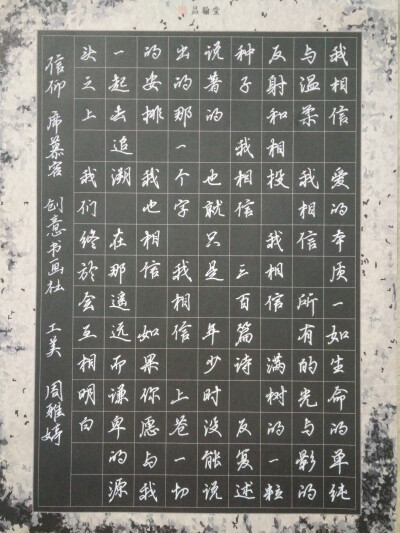 品翰堂
我相信 爱的本质一如生命的单纯
与温柔 我相信 所有的光与影的
反射和相投 我相信 满树的一粒
种子 我相信 三百篇诗 反复述
说著的 也就只是 年少时没能说
出的那一个字 我相信 上苍一切
的安排 我也相信 如果你愿与我
一起去追溯 在那遥远而谦卑的源
头之上 我们终於会互相明白
信仰 席慕容 创意书画社 工美 周雅婷